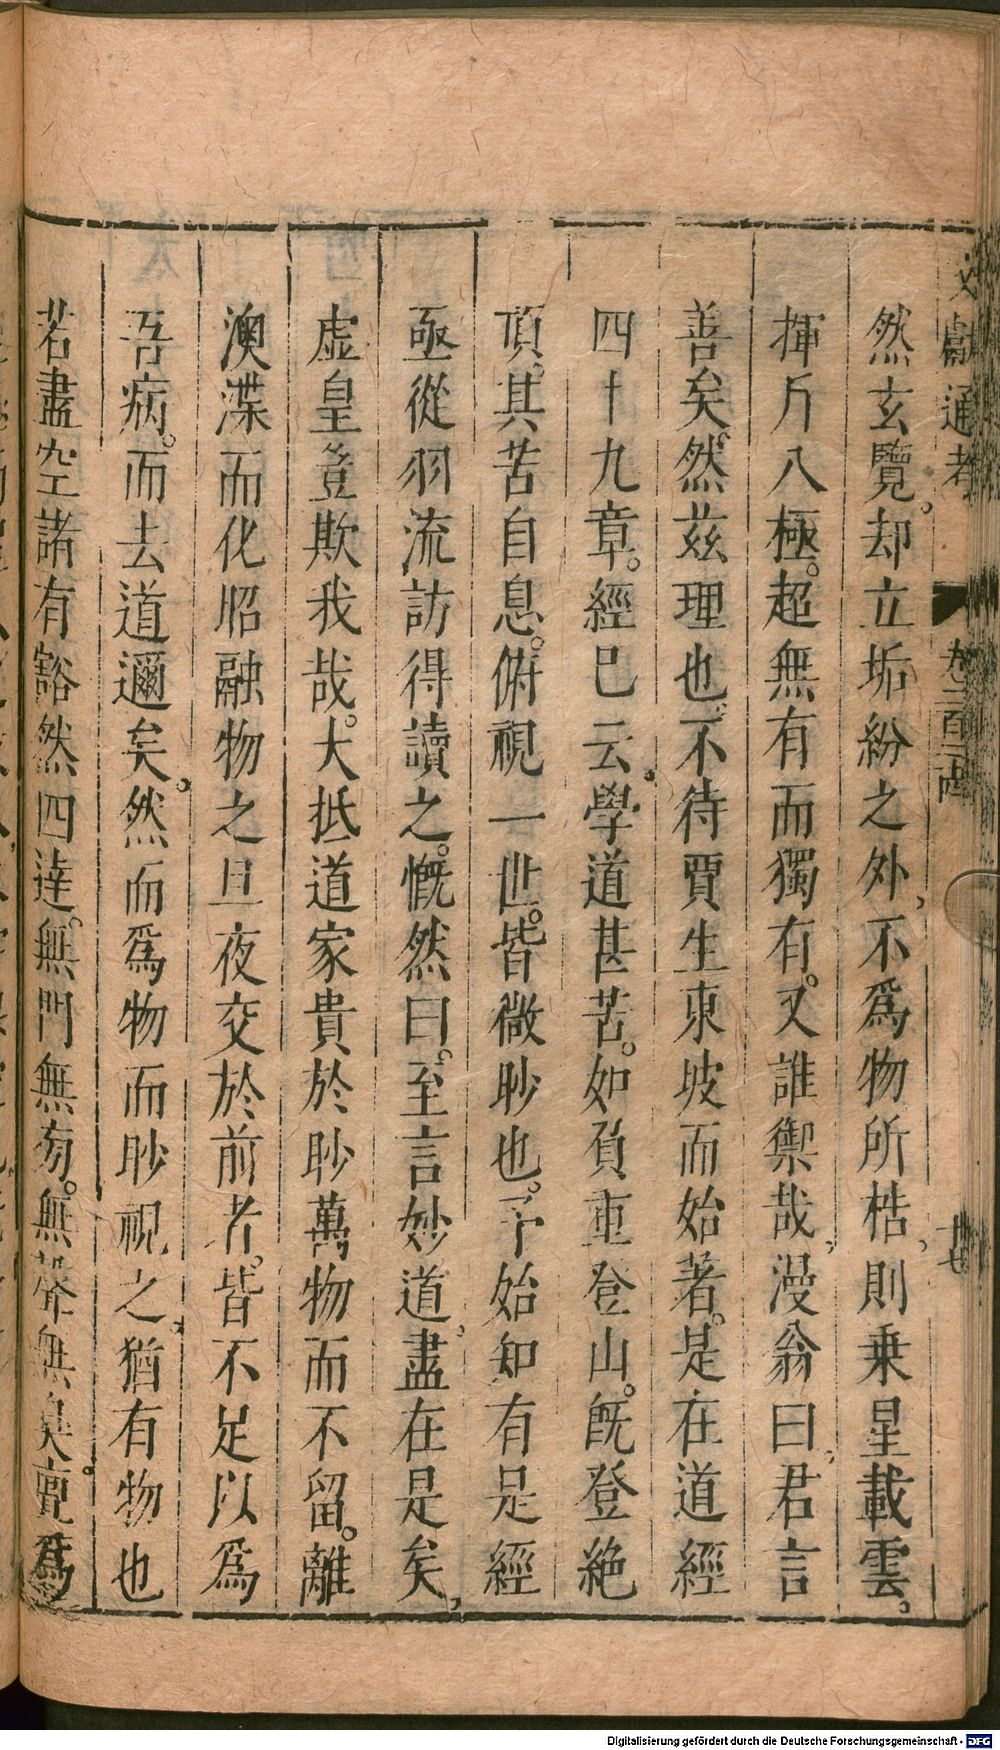 文獻通考 卷二百二十四 十七
然玄覽。却立垢紛之外,不爲物所梏,則乗星載雲。
揮斤八極。超無有而獨有。又誰禦哉,漫翁曰,君言
善矣。然茲理也,不待賈生東坡而始著。是在道經
四十九章。經巳云,學道甚苦。如負重登山。旣登絶
頂。其苦自息。俯視一世。皆微眇也。予始知有是經
亟從羽流訪得讀之。慨然曰。至言妙道,盡在是矣,
虚皇豈欺我哉。大抵道家貴於眇萬物而不留。離
澳渫而化昭融物之旦夜交於前者。皆不足以爲
吾病。而去道邇矣。然而爲物而眇視之,猶有物也
若盡空諸有豁然四達。無門無旁。無聲無臭。亶爲
Digitalisierung gefördert durch die Deutsche Forschungsgemeinschaft - DFG